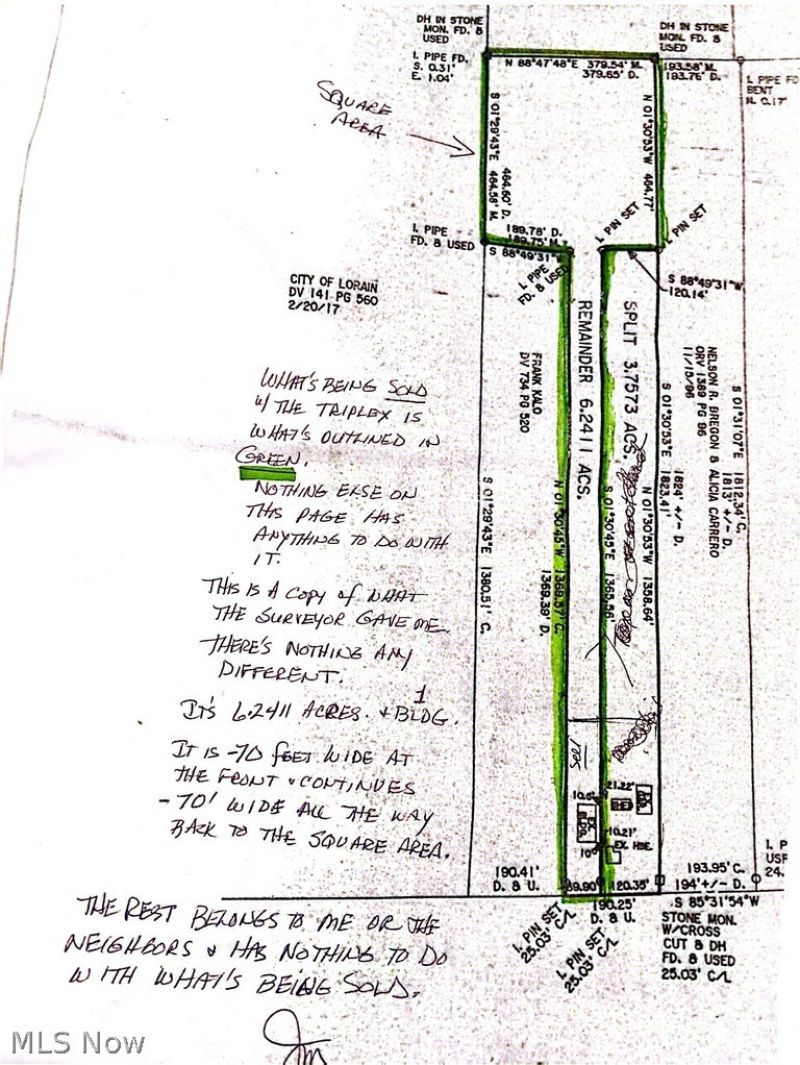 DH IN STONE
MON. FD. &
USED
DH IN STONE
MON. FD. &
USED
I. PIPE FD.
S. 0.31'
E. 1.04'
N 88°47'48"E 379.54' M.
379.65' D.
193.58' M.
193.76' D.
I. PIPE FD
BENT
N. 0.17'
SQUARE
AREA
S 01°29'43"E
484.60' D.
484.58' M.
N 01°30'53"W 464.77'
I. PIN SET
I. PIN SET
I. PIPE
FD. & USED
189.78' D.
189.75' M.
S 88°49'31"W
I. PIPE
FD. & USED
S 88°49'31"W
120.14'
CITY OF LORAIN
DV 141 PG 560
2/20/17
REMAINDER 6.2411 ACS.
SPLIT 3.7573 ACS.
FRANK KALO
DV 734 PG 520
NELSON R. BREGON & ALICIA CARRERO
ORV 1389 PG 96
11/15/96
S 01°31'07"E 1812.34' C.
1813' +/- D.
S 01°30'53"E 1824' +/- D.
1823.41'
WHAT'S BEING SOLD
W/ THE TRIPLEX IS
WHAT'S OUTLINED IN
GREEN.
NOTHING ELSE ON
THIS PAGE HAS
ANYTHING TO DO WITH
IT.
S 01°29'43"E 1380.51' C.
N 01°30'45"W 1369.57' C.
1369.39' D.
S 01°30'45"E 1365.56'
N 01°30'53"W 1358.64'
THIS IS A COPY OF WHAT
THE SURVEYOR GAVE ME.
THERE'S NOTHING ANY
DIFFERENT.
IT'S 6.2411 ACRES. + 1 BLDG.
IT IS -70 FEET WIDE AT
THE FRONT & CONTINUES
-70' WIDE ALL THE WAY
BACK TO THE SQUARE AREA.
21.22'
EX.
BLDG.
10.21'
EX. HSE.
190.41'
D. & U.
69.90'
120.35'
193.95' C.
194' +/- D.
190.25'
D. & U.
S 85°31'54"W
I. PIN SET
25.03' C/L
I. PIN SET
25.03' C/L
STONE MON.
W/CROSS
CUT & DH
FD. & USED
25.03' C/L
I. P
USE
24.
THE REST BELONGS TO ME OR THE
NEIGHBORS & HAS NOTHING TO DO
WITH WHAT'S BEING SOLD.
MLS Now